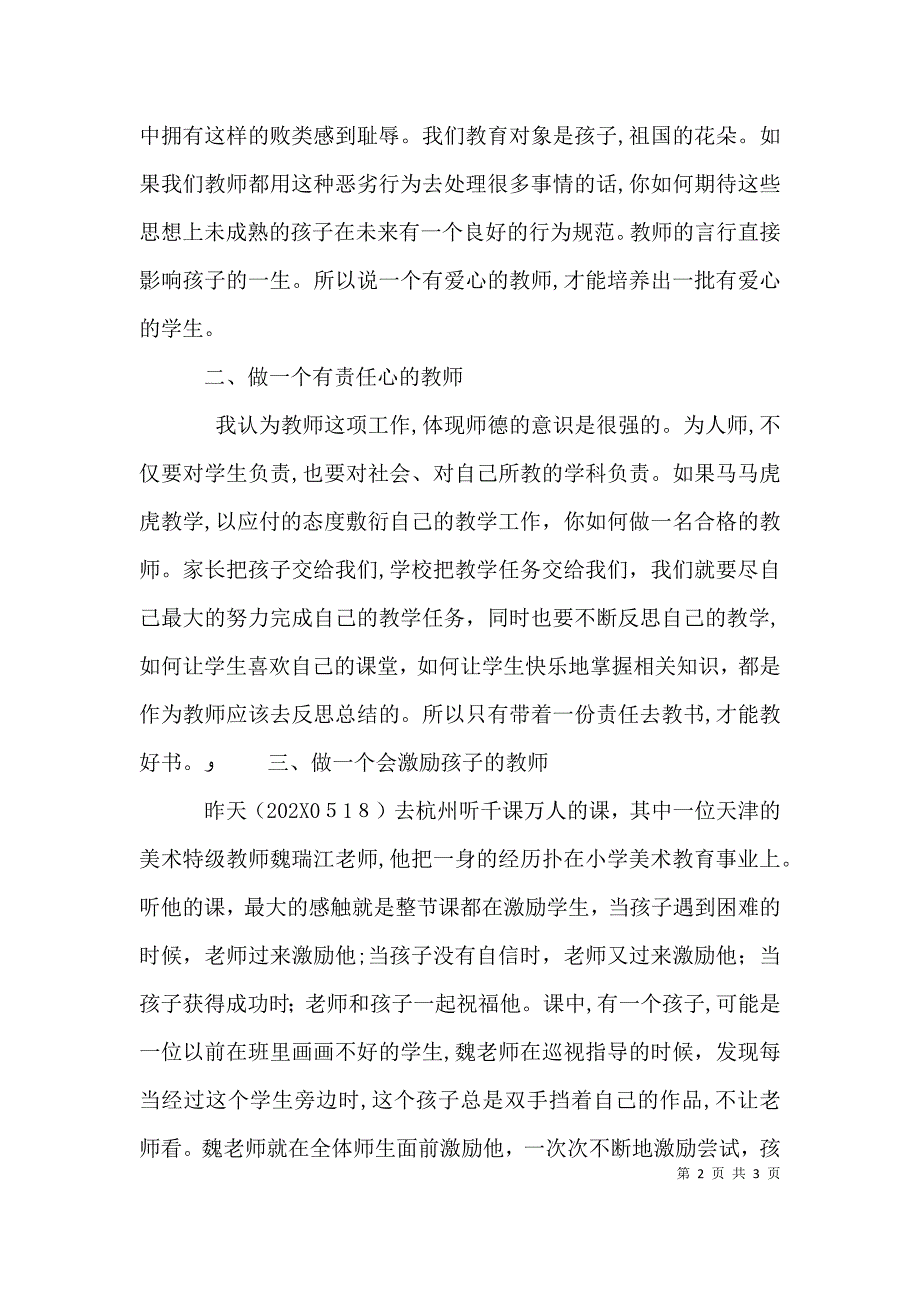 中拥有这样的败类感到耻辱。我们教育对象是孩子,祖国的花朵。如
果我们教师都用这种恶劣行为去处理很多事情的话,你如何期待这些
思想上未成熟的孩子在未来有一个良好的行为规范。教师的言行直接
影响孩子的一生。所以说一个有爱心的教师,才能培养出一批有爱心
的学生。
二、做一个有责任心的教师
我认为教师这项工作,体现师德的意识是很强的。为人师,不
仅要对学生负责,也要对社会、对自己所教的学科负责。如果马马虎
虎教学,以应付的态度敷衍自己的教学工作，你如何做一名合格的教
师。家长把孩子交给我们,学校把教学任务交给我们，我们就要尽自
己最大的努力完成自己的教学任务，同时也要不断反思自己的教学,
如何让学生喜欢自己的课堂，如何让学生快乐地掌握相关知识，都是
作为教师应该去反思总结的。所以只有带着一份责任去教书,才能教
好书。و 三、做一个会激励孩子的教师
昨天（202X0５1８）去杭州听千课万人的课，其中一位天津的
美术特级教师魏瑞江老师,他把一身的经历扑在小学美术教育事业上。
听他的课，最大的感触就是整节课都在激励学生，当孩子遇到困难的
时候，老师过来激励他;当孩子没有自信时，老师又过来激励他；当
孩子获得成功时；老师和孩子一起祝福他。课中,有一个孩子,可能是
一位以前在班里画画不好的学生,魏老师在巡视指导的时候，发现每
当经过这个学生旁边时,这个孩子总是双手挡着自己的作品,不让老
师看。魏老师就在全体师生面前激励他，一次次不断地激励尝试，孩
第 2 页 共 3 页